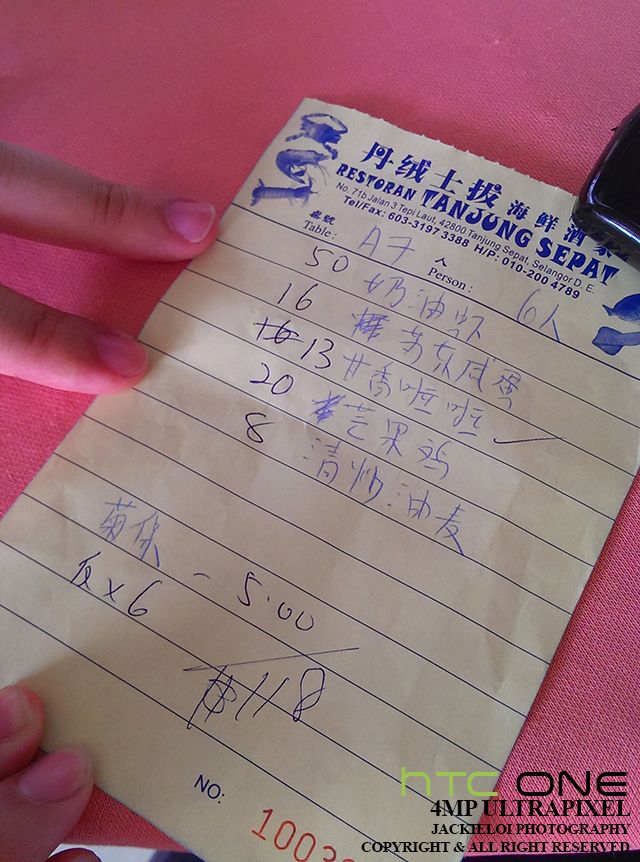 丹绒士拔 海鲜酒家
RESTORAN TANJUNG SEPAT
No. 71b Jalan 3 Tepi Laut, 42800 Tanjung Sepat, Selangor D. E.
Tel/Fax: 603-3197 3388 H/P: 010-200 4789
Table: A7 Person: 6人
50 奶油虾
16 苏东咸蛋
13 甘香啦啦
20 芒果鸡
8 清炒油麦
菊保 - 5.00
x 6
118
NO: 1003
hTC ONE
4MP ULTRAPIXEL
JACKIELOI PHOTOGRAPHY
COPYRIGHT & ALL RIGHT RESERVED